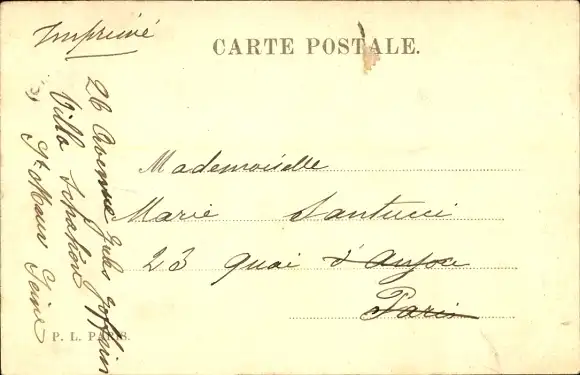 Imprimé
CARTE POSTALE.
Mademoiselle
Marie Santucci
23 quai d'Anjou
Paris
26 Avenue Jules Joffrin
Villa
St Maur Seine
P. L. PARIS.